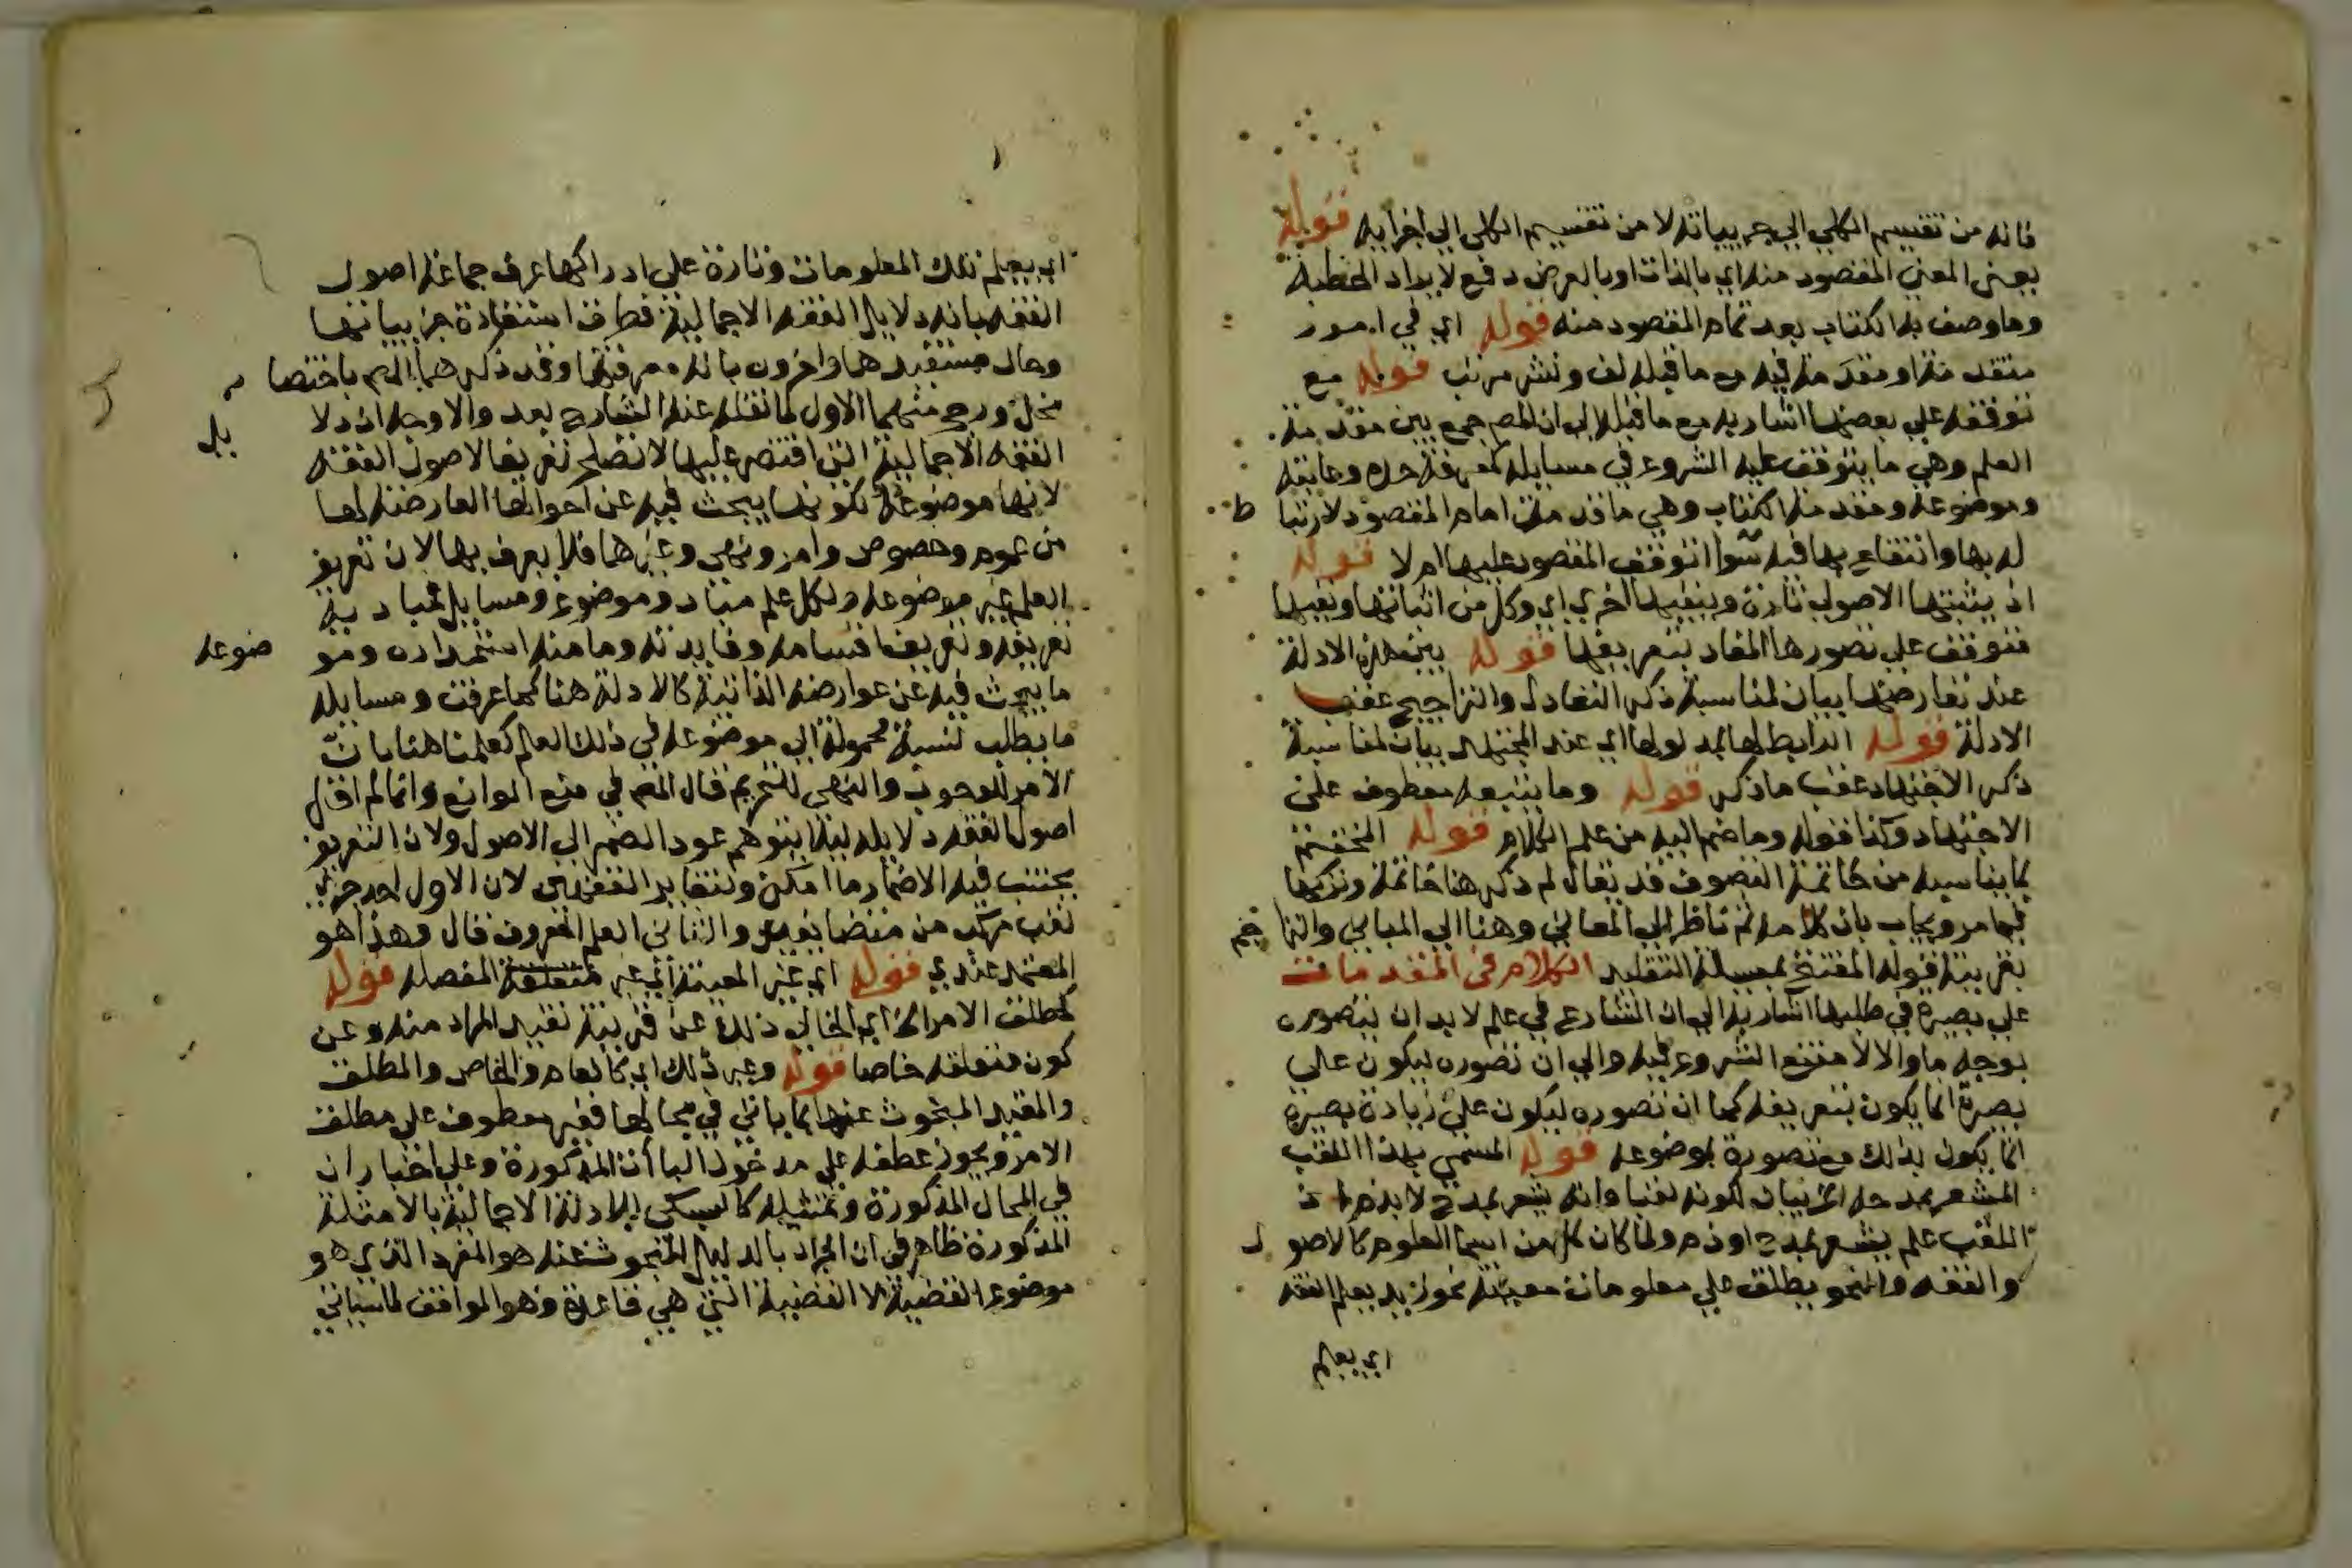 فانه من تقسيم الكلي الي جزيياته لا من تقسيم الكل الي اجزايه قوله
يعني المعني المقصود منه اي بالذات او بالعرض دفع لايراد الخطبة
وما وصف به الكتاب بعد تمام المقصود منه قوله اي في امور
متقدمة او مقدمة فيه مع ما قبله لف ونشر مرتب قوله مع
توقفه علي بعضها اشار به مع ما قبله الي ان المص جمع بين مقدمة
العلم وهي ما يتوقف عليه الشروع في مسايله كمعرفة حده وغايته
وموضوعه ومقدمة الكتاب وهي ما قدمت امام المقصود لارتبا ط
له بها وانتفاع بها فيه سوا توقف المقصود عليها ام لا قوله
اذ يثبتها الاصولي تارة وينفيها اخري اي وكل من اثباتها ونفيها
متوقف علي تصورها المفاد بتعريفها قوله بين هذه الادلة
عند تعارضها بيان لمناسبة ذكر التعادل والتراجيح عقب
الادلة قوله الرابط لها بمدلولها اي عند المجتهد بيان لمناسبة
ذكر الاجتهاد عقب ما ذكر قوله وما يتبعه معطوف علي
الاجتهاد وكذا قوله وما ضم اليه من علم الكلام قوله المختتم
بما يناسبه من خاتمة التصوف قد يقال لم ذكر هنا خاتمة وتركها
فيما مر ويجاب بان كلامه ثم ناظر الي المعاني وهنا الي المباني والترا جم
بقرينة قوله المفتتح بمسيلة التقليد الكلام في المقدمات
علي بصيرة في طلبها اشار به الي ان الشارع في علم لا بد ان يتصوره
بوجه ما والا لامتنع الشروع فيه والي ان تصوره ليكون علي
بصيرة انما يكون بتعريفه كما ان تصوره ليكون علي زيادة بصيرة
انما يكون بذلك مع تصوره بموضوعه قوله المسمي بهذا اللقب
المشعر بمدحه الخ بيان لكونه لقبا وانه يشعر بمدح لا بذم اذ
اللقب علم يشعر بمدح او ذم ولما كان كل من اسما العلوم كالاصو ل
والفقه والنحو يطلق علي معلومات معينة نحو زيد يعلم الفقه
اي يعلم
اي يعلم تلك المعلومات وتارة علي ادراكها عرف جماعة اصول
الفقه بانه دلايل الفقه الاجمالية وطرق استفادة جزيياتها
وحال مستفيدها واخرون بانه معرفتها وقد ذكرهما المص باختصا ر
مخل ورجح منهما الاول لما نقله عنه الشارح بعد والاوجه ان دلا يل
الفقه الاجمالية التي اقتصر عليها لا تصلح تعريفا لاصول الفقه
لانها موضوعه لكونها يبحث فيه عن احوالها العارضة لها
من عموم وخصوص وامر ونهي وغيرها فلا يعرف بها لان تعريف
العلم غير موضوعه ولكل علم مباد وموضوع ومسايل فمباديه
تعريفه وتعريف اقسامه وفايدته وما منه استمداده ومو ضوعه
ما يبحث فيه عن عوارضه الذاتية كالادلة هنا كما عرفت ومسايله
ما يطلب نسبة محموله الي موضوعه في ذلك العلم كعلمنا هنا بان
الامر للوجوب والنهي للتحريم قال المص في منع الموانع وانما لم اقل
اصول الفقه دلايله ليلا يتوهم عود الضمير الي الاصول ولان التعريف
يجتنب فيه الاضمار ما امكن ولتغاير الفقهين لان الاول احد جزئي
لقب مركب من متضايفين والثاني العلم المعروف قال وهذا هو
المعتمد عندي قوله اي غير المعينة اي غير متعلقه المفصله قوله
كمطلق الامر الخ اي الخالي ذلك عن قرينة تقييد المراد منه وعن
كون متعلقه خاصا قوله وغير ذلك اي كالعام والخاص والمطلق
والمقيد المبحوث عنها بما ياتي في محالها فغير معطوف علي مطلق
الامر ويجوز عطفه علي مدخول البا ان المذكورة وعلي اختيار ان
في المحال المذكورة وتمثيله كالسبكي للادلة الاجمالية بالامثلة
المذكورة ظاهر في ان المراد بالدليل المبحوث عنه هو المفرد الذي هو
موضوع القضية لا القضية التي هي قاعدة وهو الموافق لما سياتي